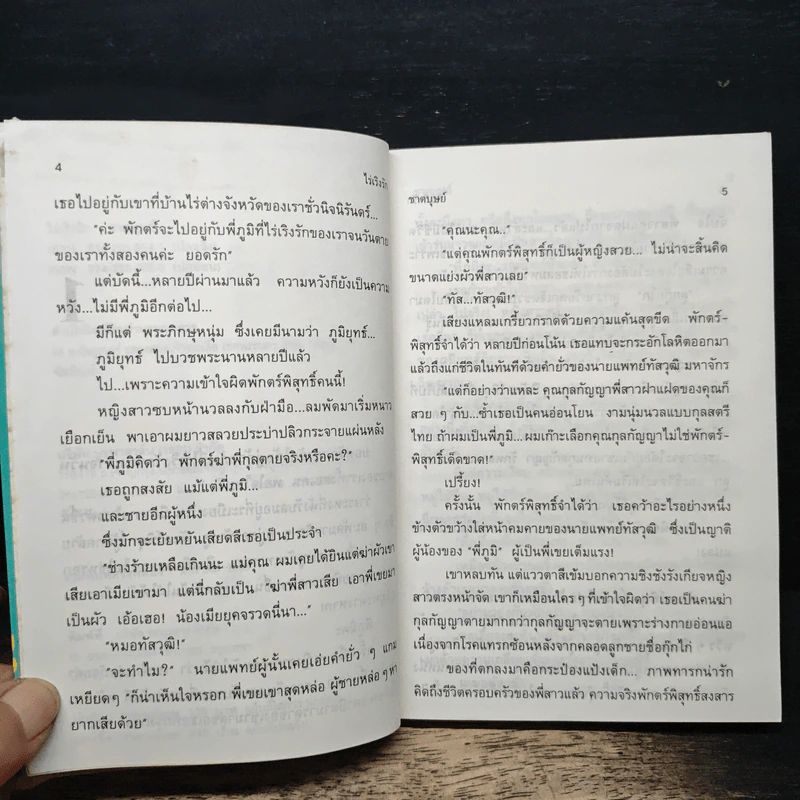 4
ไร่เริงรัก
เธอไปอยู่กับเขาที่บ้านไร่ต่างจังหวัดของเราชั่วนิจนิรันดร์...
"ค่ะ พักตร์จะไปอยู่กับพี่ภูมิที่ไร่เริงรักของเราจนวันตาย
ของเราทั้งสองคนค่ะ ยอดรัก"
แต่บัดนี้...หลายปีผ่านมาแล้ว ความหวังก็ยังเป็นความ
หวัง...ไม่มีพี่ภูมิอีกต่อไป...
มีก็แต่ พระภิกษุหนุ่ม ซึ่งเคยมีนามว่า ภูมิยุทธ์...
ภูมิยุทธ์ ไปบวชพระนานหลายปีแล้ว
ไป...เพราะความเข้าใจผิดพักตร์พิสุทธิ์คนนี้!
หญิงสาวซบหน้านวลลงกับฝ่ามือ...ลมพัดมาเริ่มหนาว
เยือกเย็น พาเอาผมยาวสลวยประบ่าปลิวกระจายแผ่นหลัง
"พี่ภูมิคิดว่า พักตร์ฆ่าพี่กุลตายจริงหรือคะ?"
เธอถูกสงสัย แม้แต่พี่ภูมิ...
และชายอีกผู้หนึ่ง
ซึ่งมักจะเย้ยหยันเสียดสีเธอเป็นประจำ
"ช่างร้ายเหลือเกินนะ แม่คุณ ผมเคยได้ยินแต่ฆ่าผัวเขา
เสียเอาเมียเขามา แต่นี่กลับเป็น "ฆ่าพี่สาวเสีย เอาพี่เขยมา
เป็นผัว เอ้อเฮอ! น้องเมียยุคจรวดนี่นา..."
"หมอทัสวุฒิ!"
"จะทำไม?" นายแพทย์ผู้นั้นเคยเอ่ยคำยั่ว ๆ แกม
เหยียดๆ "ก็น่าเห็นใจหรอก พี่เขยเขาสุดหล่อ ผู้ชายหล่อ ๆ หา
ยากเสียด้วย"
ชาตบุษย์
5
"คุณนะคุณ.."
"แต่คุณพักตร์พิสุทธิ์ก็เป็นผู้หญิงสวย... ไม่น่าจะสิ้นคิด
ขนาดแย่งผัวพี่สาวเลย"
"ทัส...ทัสวุฒิ!"
เสียงแหลมเกรี้ยวกราดด้วยความแค้นสุดขีด พักตร์-
พิสุทธิ์จำได้ว่า หลายปีก่อนโน้น เธอแทบจะกระอักโลหิตออกมา
แล้วถึงแก่ชีวิตในทันทีด้วยคำยั่วของนายแพทย์ทัสวุฒิ มหาจักร
"แต่ก็อย่างว่าแหละ คุณกุลกัญญาพี่สาวฝาแฝดของคุณก็
สวย ๆ กับ...ซ้ำเธอเป็นคนอ่อนโยน งามนุ่มนวลแบบกุลสตรี
ไทย ถ้าผมเป็นพี่ภูมิ...ผมเก๊าะเลือกคุณกุลกัญญาไม่ใช่พักตร์-
พิสุทธิ์เด็ดขาด!"
เปรี้ยง!
ครั้งนั้น พักตร์พิสุทธิ์จำได้ว่า เธอคว้าอะไรอย่างหนึ่ง
ข้างตัวขว้างใส่หน้าคมคายของนายแพทย์ทัสวุฒิ ซึ่งเป็นญาติ
ผู้น้องของ "พี่ภูมิ" ผู้เป็นพี่เขยเต็มแรง!
เขาหลบทัน แต่แววตาสีเข้มบอกความชิงชังรังเกียจหญิง
สาวตรงหน้าจัด เขาก็เหมือนใคร ๆ ที่เข้าใจผิดว่า เธอเป็นคนฆ่า
กุลกัญญาตายมากกว่ากุลกัญญาจะตายเพราะร่างกายอ่อนแอ
เนื่องจากโรคแทรกซ้อนหลังจากคลอดลูกชายชื่อกุ๊กไก่
ของที่ตกลงมาคือกระป๋องแป้งเด็ก... ภาพทารกน่ารัก
คิดถึงชีวิตครอบครัวของพี่สาวแล้ว ความจริงพักตร์พิสุทธิ์สงสาร